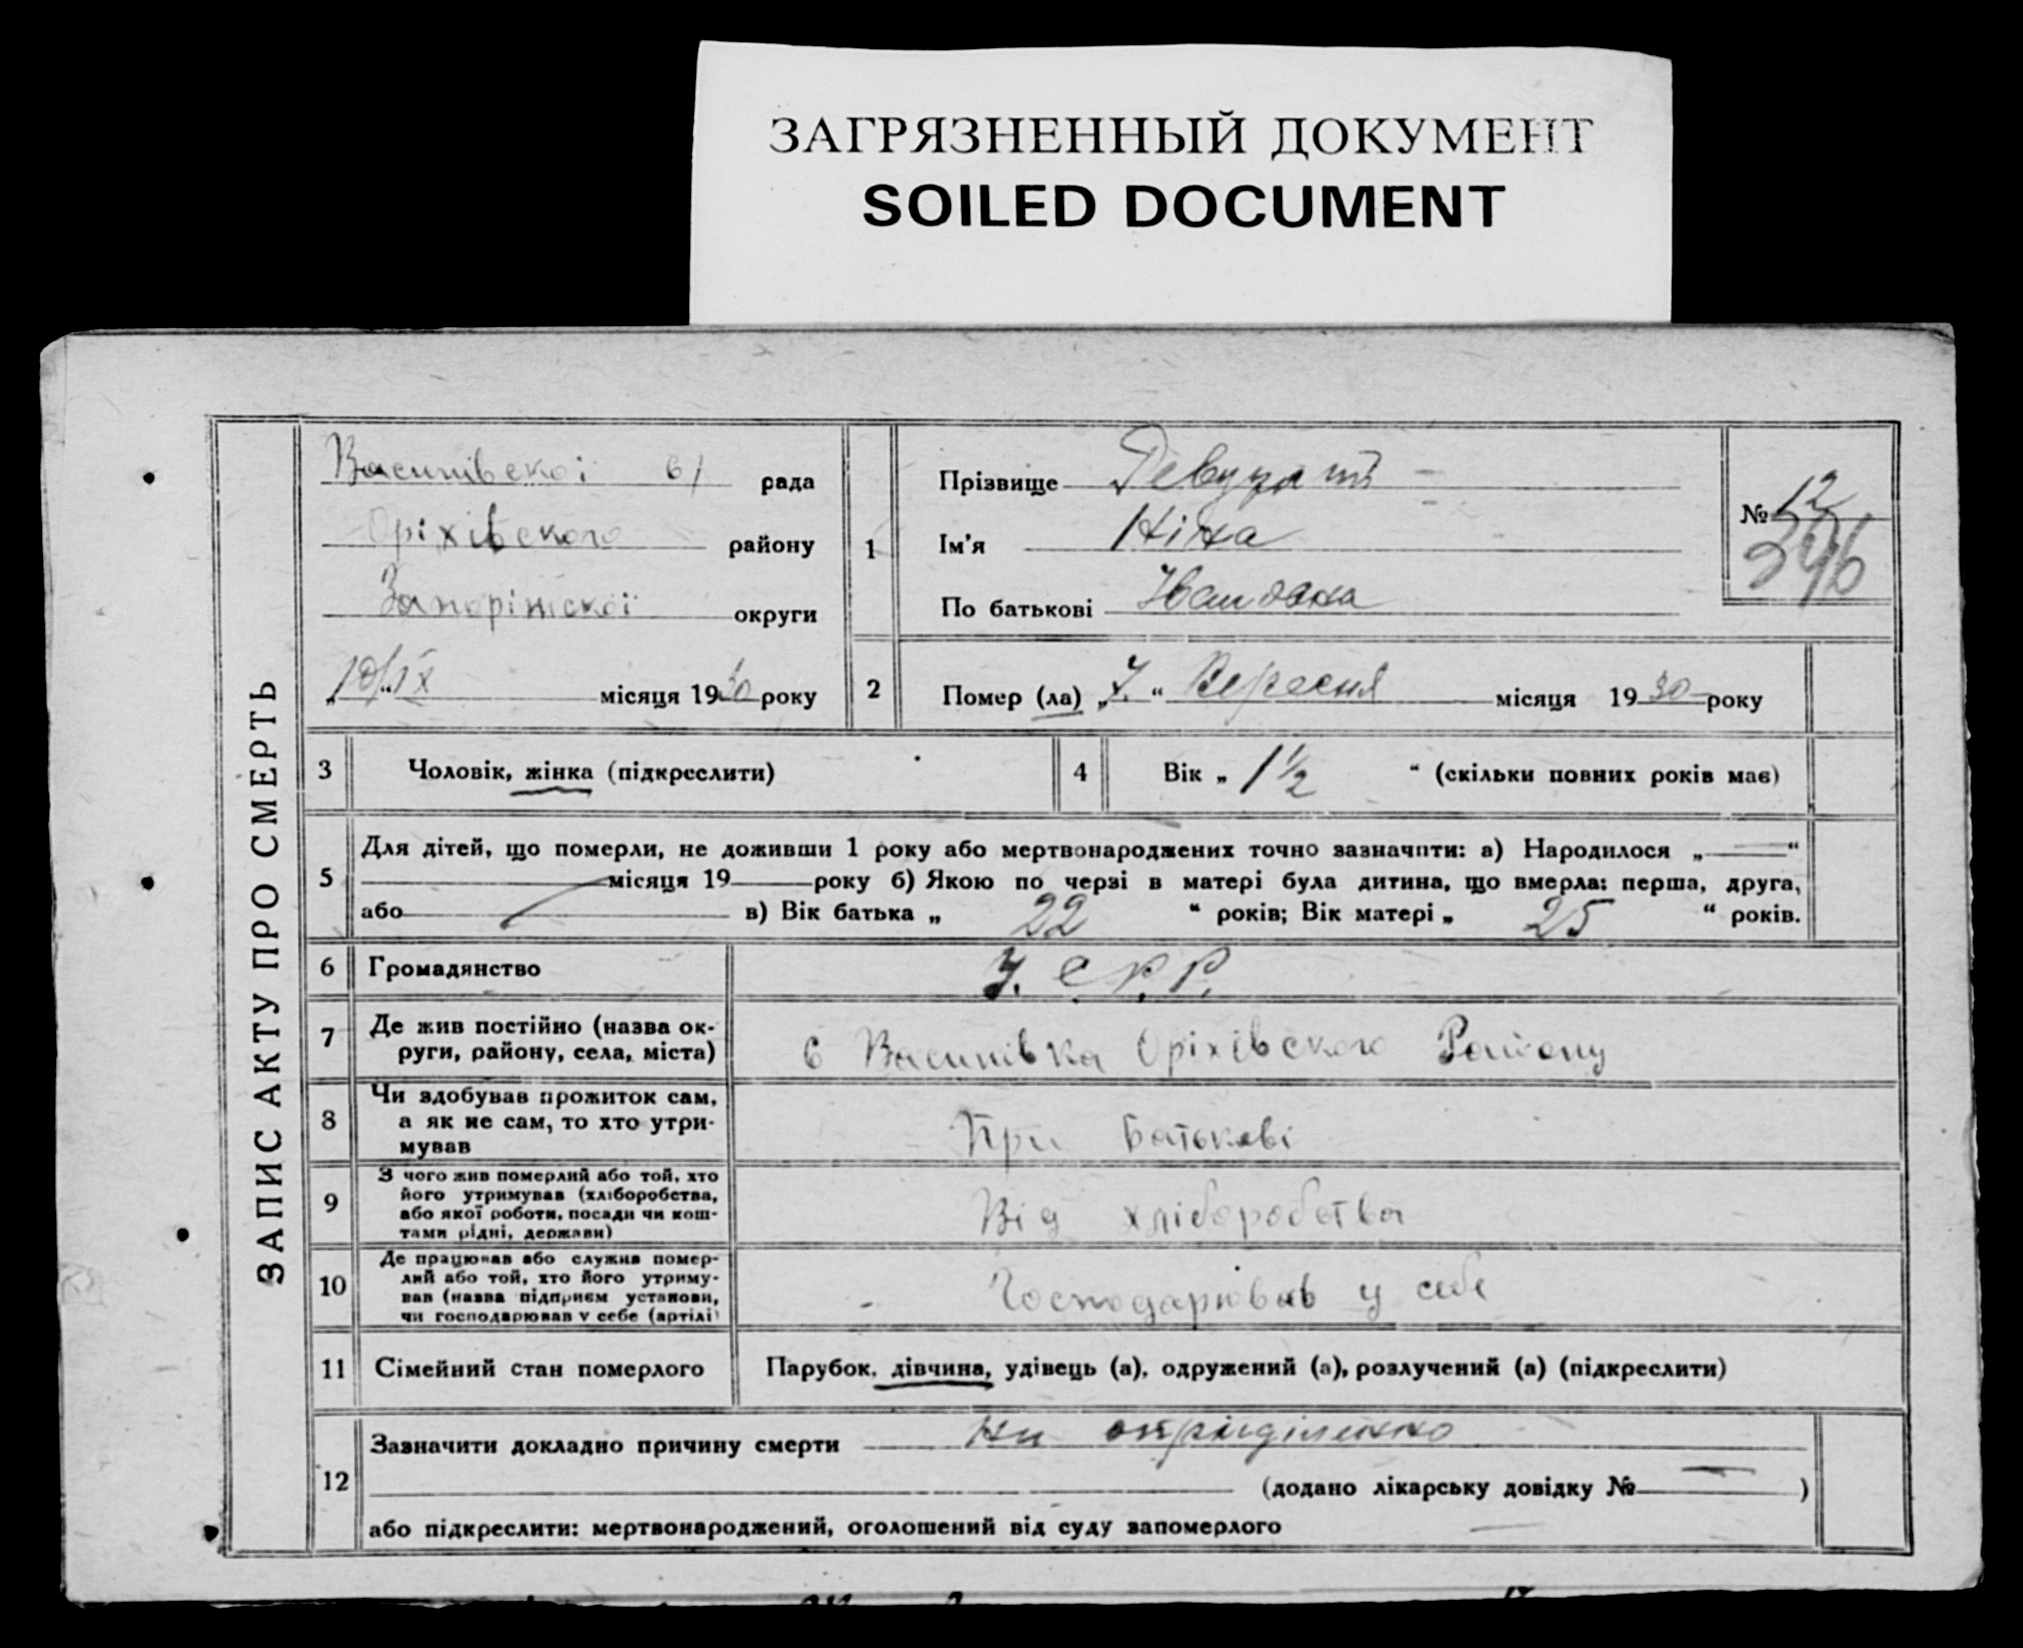 ЗАГРЯЗНЕННЫЙ ДОКУМЕНТ
SOILED DOCUMENT
ЗАПИС АКТУ ПРО СМЕРТЬ
Василівської с/ рада
Оріхівського району
Запоріжської округи
„10/IX місяця 1930 року
1
Прізвище
Ім'я Ніна
По батькові Іванівна
№ 12
396
2
Помер (ла) „7.“ Вересня місяця 1930 року
3 Чоловік, жінка (підкреслити)
4 Вік „ 1 1/2 “ (скільки повних років мав)
5 Для дітей, що померли, не доживши 1 року або мертвонароджених точно зазначити: а) Народилося „ “
місяця 19 року б) Якою по черзі в матері була дитина, що вмерла: перша, друга,
або в) Вік батька „ 22 “ років; Вік матері „ 25 “ років.
6 Громадянство У. С. Р. Р.
7 Де жив постійно (назва ок-
руги, району, села, міста)
с Василівка Оріхівського Району
8 Чи здобував прожиток сам,
а як не сам, то хто утри-
мував
При батькові
9 З чого жив померлий або той, хто
його утримував (хліборобства,
або якої роботи, посади чи кош-
тами рідні, держави)
Від хліборобства
10 Де працював або служив помер-
лий або той, хто його утриму-
вав (назва підприєм установи,
чи господарював у себе (артілі)
Господарював у себе
11 Сімейний стан померлого Парубок, дівчина, удівець (а), одружений (а), розлучений (а) (підкреслити)
12 Зазначити докладно причину смерти Ни оприділенно
(додано лікарську довідку № — )
або підкреслити: мертвонароджений, оголошений від суду запомерлого